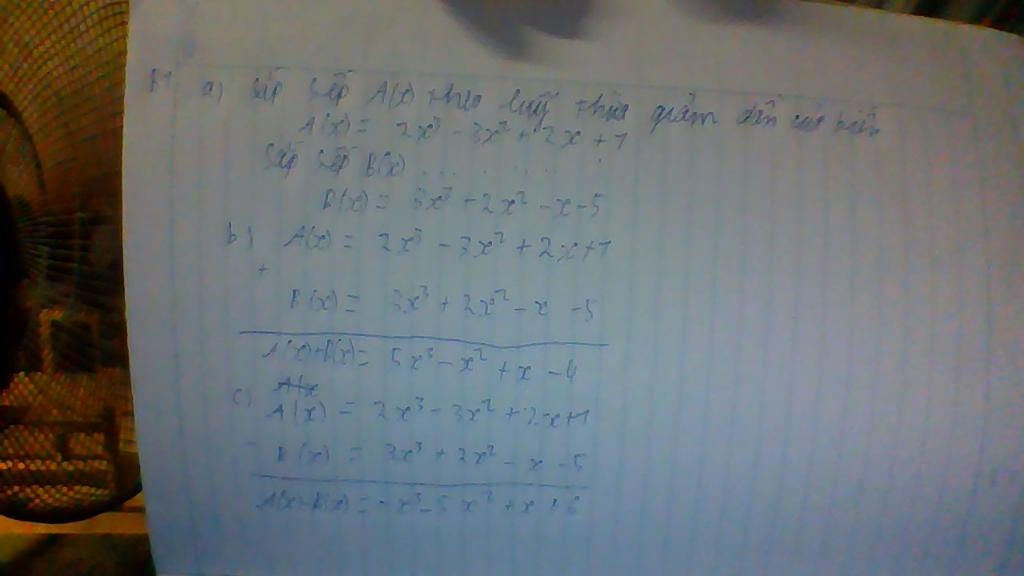 B1 a) Sắp sếp A(x) theo luỹ thừa giảm dần của biến
A(x) = 2x³ - 3x² + 2x + 1
Sắp sếp B(x) . . . . . . . .
B(x) = 3x³ + 2x² - x - 5
b) A(x) = 2x³ - 3x² + 2x + 1
+
B(x) = 3x³ + 2x² - x - 5
A(x)+B(x) = 5x³ - x² + x - 4
A(x
c) A(x) = 2x³ - 3x² + 2x + 1
- B(x) = 3x³ + 2x² - x - 5
A(x)-B(x) = -x³ - 5x² + x + 6